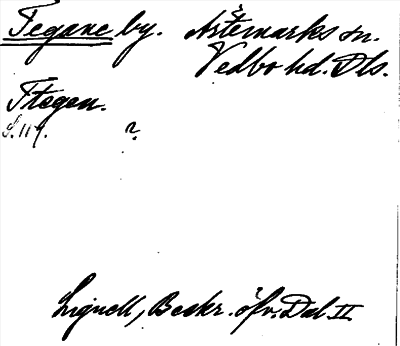 Tegane by. Ärtemarks sn.
Vedbo hd. Dls.
Ttegen.
S. 119. ?
Lignell, Beskr. öfv. Dal. II.